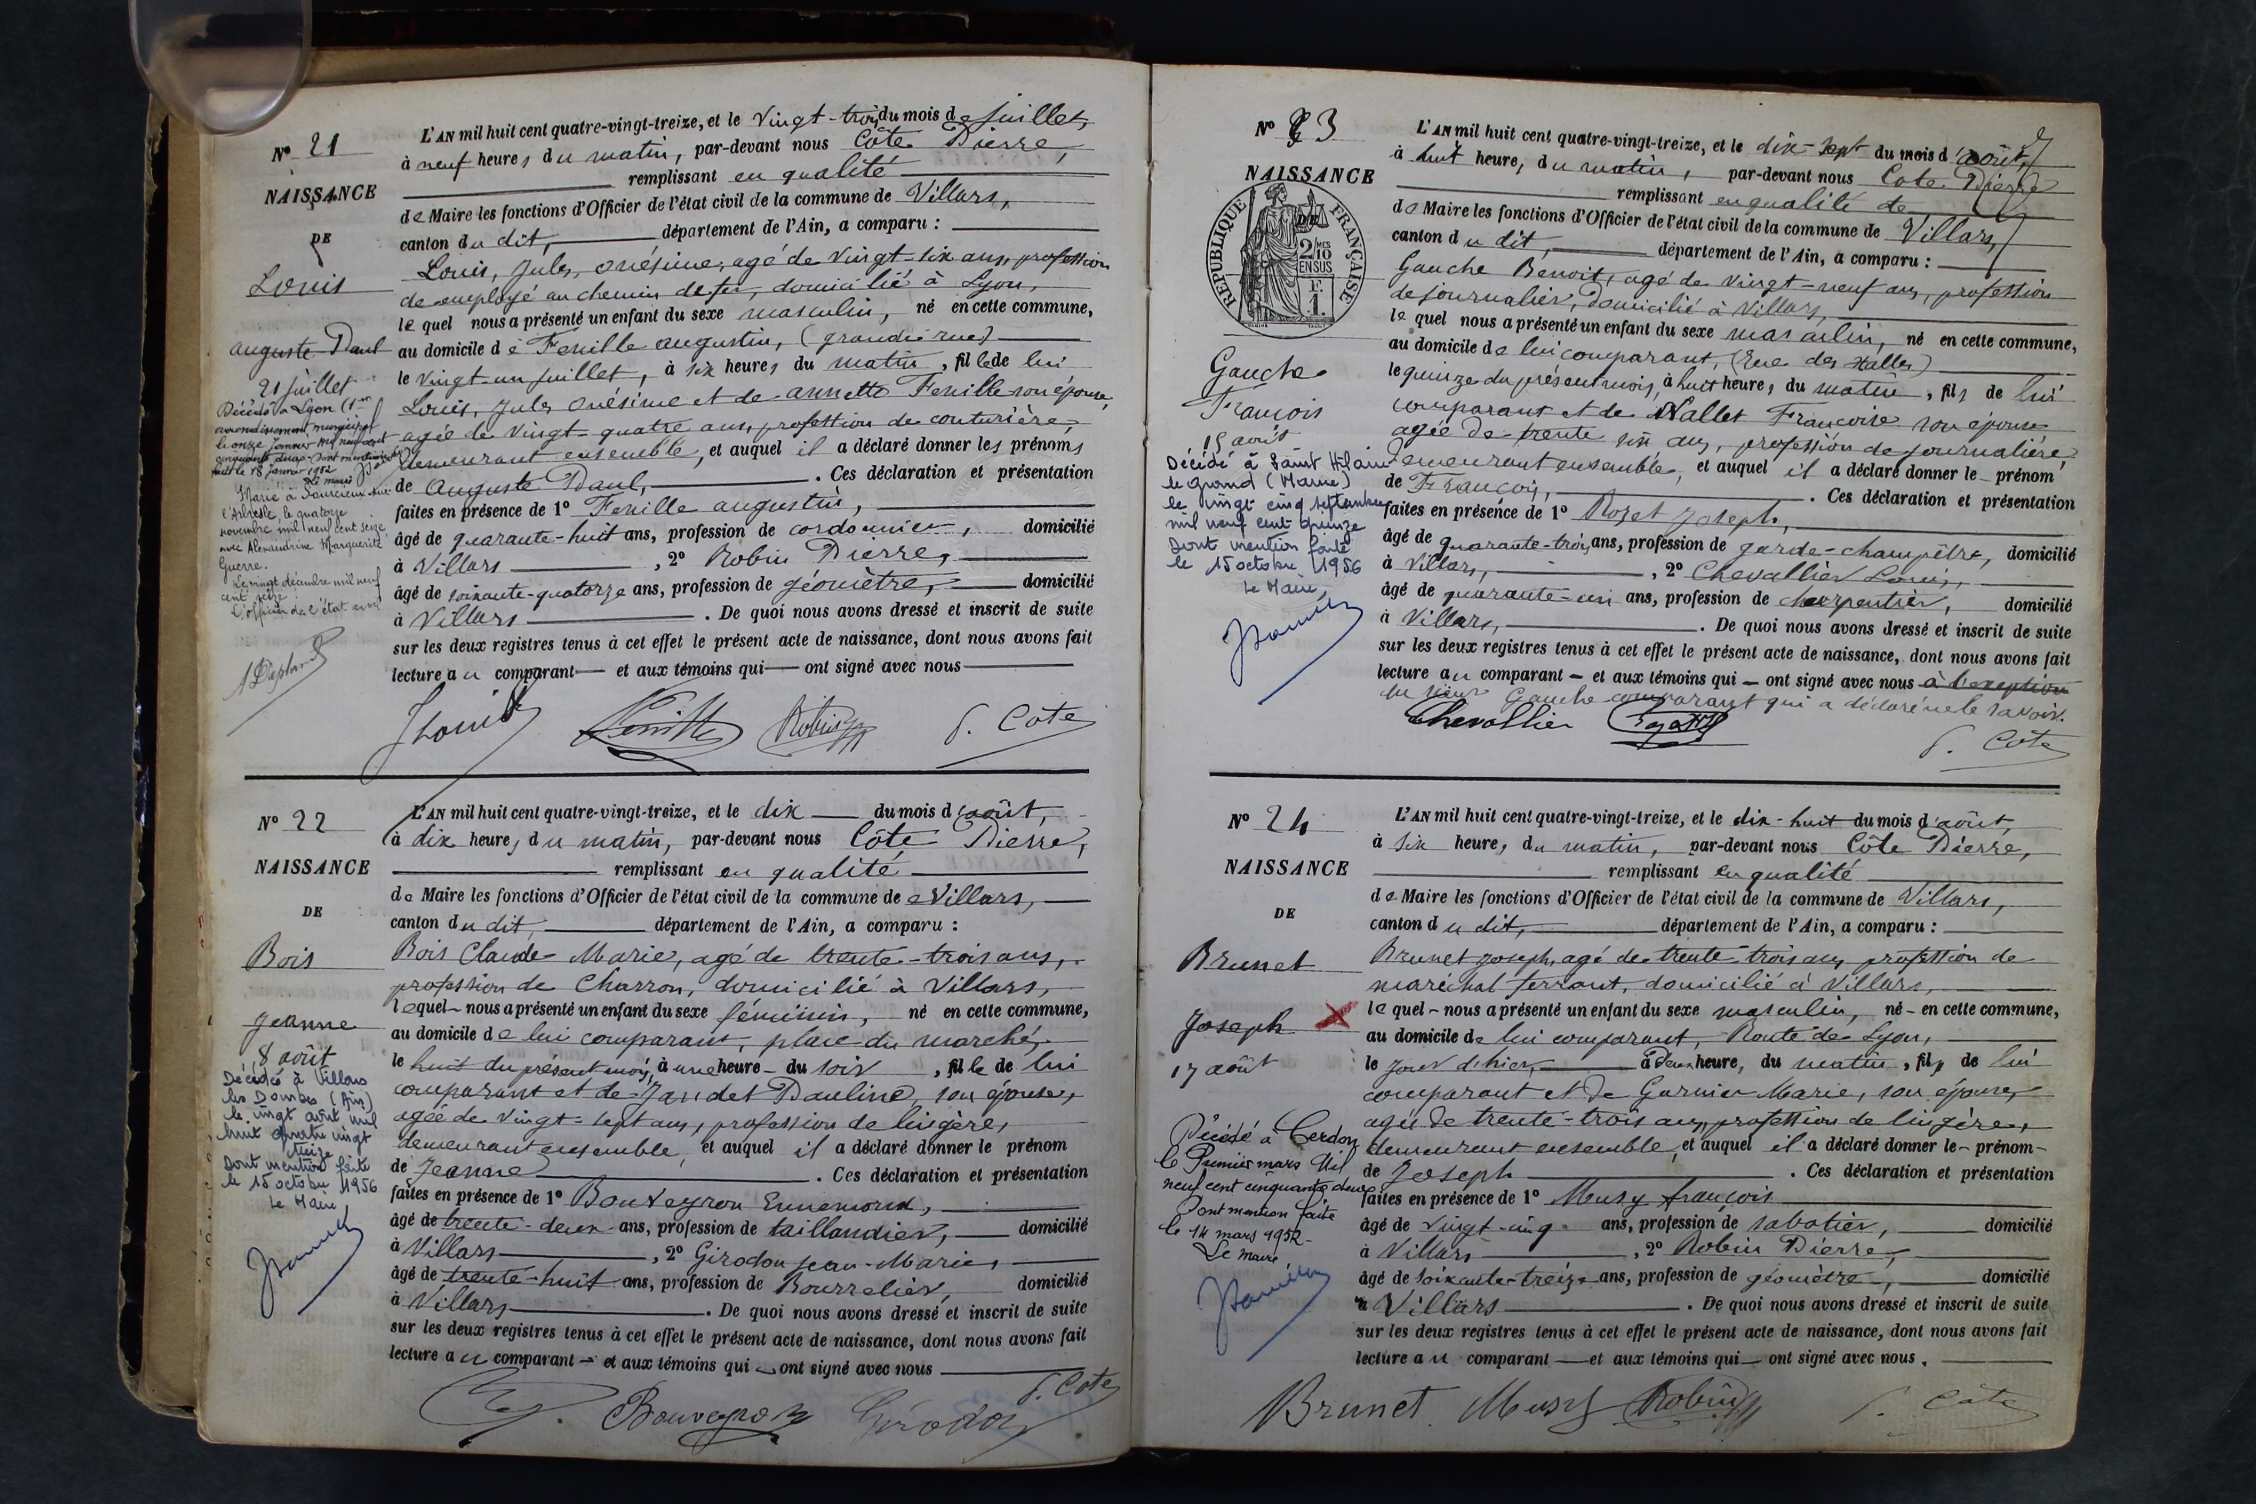 N° 21
NAISSANCE
DE
Louis
auguste Paul
21 juillet
Décédé à Lyon (1er
arrondissement municipal
le onze janvier mil neuf cent
cinquante deux - Dont mention
faite le 18 janvier 1952
Le maire
Marié à Sourcieux-sur-
l'Arbresle le quatorze
novembre mil neuf cent seize
avec Alexandrine Marguerite
Guerre.
Le vingt décembre mil neuf
cent seize
L'officier de l'état civil
L'AN mil huit cent quatre-vingt-treize, et le Vingt-trois du mois de juillet,
à neuf heures du matin, par-devant nous Côte Pierre,
remplissant en qualité
de Maire les fonctions d'Officier de l'état civil de la commune de Villars,
canton du dit, département de l'Ain, a comparu :
Louis, Jules, onésime, agé de vingt-six ans, profession
de employé au chemin de fer, domicilié à Lyon,
le quel nous a présenté un enfant du sexe masculin, né en cette commune,
au domicile de Fenille augustin, (grande rue)
le vingt-un juillet, à six heures du matin, fils de lui
Louis, Jules onésime et de annette Fenille son épouse,
agée de vingt-quatre ans, profession de couturière,
demeurant ensemble, et auquel il a déclaré donner les prénoms
de Auguste Paul, . Ces déclaration et présentation
faites en présence de 1° Fenille augustin,
âgé de quarante-huit ans, profession de cordonnier, domicilié
à Villars , 2° Robin Pierre,
âgé de soixante-quatorze ans, profession de géomètre, domicilié
à Villars . De quoi nous avons dressé et inscrit de suite
sur les deux registres tenus à cet effet le présent acte de naissance, dont nous avons fait
lecture au comparant et aux témoins qui ont signé avec nous
JLouis Fenille Robin P. Côte
N° 22
NAISSANCE
DE
Bois
Jeanne
8 août
Décédée à Villars
les Dombes (Ain)
le vingt août mil
huit quatre vingt
treize
Dont mention faite
le 15 octobre 1956
Le Maire
L'AN mil huit cent quatre-vingt-treize, et le dix du mois d'août,
à dix heures du matin, par-devant nous Côte Pierre,
remplissant en qualité
de Maire les fonctions d'Officier de l'état civil de la commune de Villars,
canton du dit, département de l'Ain, a comparu :
Bois Claude Marie, agé de trente-trois ans,
profession de Charron, domicilié à Villars,
lequel nous a présenté un enfant du sexe féminin, né en cette commune,
au domicile de lui comparant, place du marché,
le huit du présent mois, à une heure du soir , fille de lui
comparant et de Jandet Pauline, son épouse,
agée de vingt-sept ans, profession de lingère,
demeurant ensemble, et auquel il a déclaré donner le prénom
de Jeanne . Ces déclaration et présentation
faites en présence de 1° Bouveyron Ennemond,
âgé de trente-deux ans, profession de taillandier, domicilié
à Villars , 2° Girodon Jean-Marie,
âgé de trente-huit ans, profession de Bourrelier, domicilié
à Villars . De quoi nous avons dressé et inscrit de suite
sur les deux registres tenus à cet effet le présent acte de naissance, dont nous avons fait
lecture au comparant et aux témoins qui ont signé avec nous
Bouveyron Girodon P. Côte
N° 23
NAISSANCE
DE
RÉPUBLIQUE FRANÇAISE
2/10 MES
EN SUS
F.
1.
Gauche
François
15 août
Décédé à Saint Hilaire
le Grand (Marne)
le vingt cinq septembre
mil neuf cent quinze
Dont mention faite
le 15 octobre 1956
Le Maire,
L'AN mil huit cent quatre-vingt-treize, et le dix-sept du mois d'août,
à huit heures du matin, par-devant nous Cote Pierre
remplissant en qualité de
de Maire les fonctions d'Officier de l'état civil de la commune de Villars,
canton du dit, département de l'Ain, a comparu :
Gauche Benoit, agé de vingt-neuf ans, profession
de journalier, domicilié à Villars,
le quel nous a présenté un enfant du sexe masculin, né en cette commune,
au domicile de lui comparant, (Rue des Halles)
le quinze du présent mois, à huit heures du matin, fils de lui
comparant et de Nallet Françoise son épouse
agée de trente six ans, profession de journalière,
demeurant ensemble, et auquel il a déclaré donner le prénom
de François, . Ces déclaration et présentation
faites en présence de 1° Rozet Joseph,
âgé de quarante-trois ans, profession de garde-champêtre, domicilié
à Villars, , 2° Chevallier Louis,
âgé de quarante-un ans, profession de charpentier, domicilié
à Villars, . De quoi nous avons dressé et inscrit de suite
sur les deux registres tenus à cet effet le présent acte de naissance, dont nous avons fait
lecture au comparant et aux témoins qui ont signé avec nous à l'exception
du sieur Gauche comparant qui a déclaré ne le savoir.
Chevallier P. Côte
N° 24
NAISSANCE
DE
Brunet
Joseph
17 août
Décédé à Cerdon
le Premier mars Mil
neuf cent cinquante deux
Dont mention faite
le 14 mars 1952-
Le Maire
L'AN mil huit cent quatre-vingt-treize, et le dix-huit du mois d'août,
à six heures du matin, par-devant nous Côte Pierre,
remplissant en qualité
de Maire les fonctions d'Officier de l'état civil de la commune de Villars,
canton du dit, département de l'Ain, a comparu :
Brunet Joseph, agé de trente trois ans, profession de
maréchal ferrant, domicilié à Villars,
le quel nous a présenté un enfant du sexe masculin, né en cette commune,
au domicile de lui comparant, Route de Lyon,
le jour d'hier, à deux heures du matin, fils de lui
comparant et de Garnier Marie, son épouse,
agée de trente-trois ans, profession de lingère,
demeurant ensemble, et auquel il a déclaré donner le prénom
de Joseph . Ces déclaration et présentation
faites en présence de 1° Musy françois
âgé de vingt-cinq ans, profession de sabotier, domicilié
à Villars , 2° Robin Pierre,
âgé de soixante-treize ans, profession de géomètre, domicilié
à Villars . De quoi nous avons dressé et inscrit de suite
sur les deux registres tenus à cet effet le présent acte de naissance, dont nous avons fait
lecture au comparant et aux témoins qui ont signé avec nous.
Brunet Musy Robin P. Côte